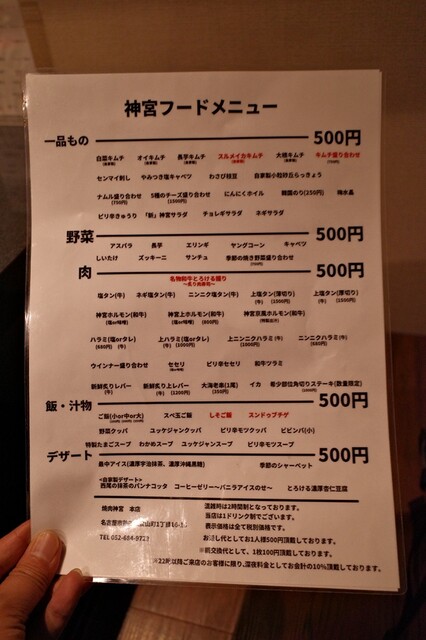 神宮フードメニュー
一品もの 500円
白菜キムチ オイキムチ 長芋キムチ スルメイカキムチ 大根キムチ キムチ盛り合わせ
センマイ刺し やみつき塩キャベツ わさび枝豆 自家製小粒砂丘らっきょう
ナムル盛り合わせ 5種のチーズ盛り合わせ にんにくホイル 韓国のり(250円) 梅水晶
(750円) (1000円)
ピリ辛きゅうり 「新」神宮サラダ チョレギサラダ ネギサラダ
野菜 500円
アスパラ 長芋 エリンギ ヤングコーン キャベツ
しいたけ ズッキーニ サンチュ 季節の焼き野菜盛り合わせ
肉 500円
名物和牛とろける握り
塩タン(牛) ネギ塩タン(牛) ニンニク塩タン(牛) 上塩タン(薄切り) 上塩タン(厚切り)
神宮ホルモン(和牛) 神宮上ホルモン(和牛) 神宮京風ホルモン(和牛)
(塩or味噌) (塩or味噌)
ハラミ(塩orタレ) 上ハラミ(塩orタレ) 上ニンニクハラミ ニンニクハラミ
ウインナー盛り合わせ セセリ ピリ辛セセリ 和牛ツラミ
新鮮炙りレバー 新鮮炙り上レバー 大海老串(1尾) イカ 希少部位角切りステーキ(数量限定)
飯・汁物 500円
ご飯(小or中or大) スペ玉ご飯 しそご飯 スンドゥブチゲ
野菜クッパ ユッケジャンクッパ ピリ辛モツクッパ ビビンバ(小)
特製たまごスープ わかめスープ ユッケジャンスープ ピリ辛モツスープ
デザート 500円
最中アイス(濃厚宇治抹茶、濃厚沖縄黒糖) 季節のシャーベット
<自家製デザート>
西尾の抹茶のパンナコッタ コーヒーゼリー〜バニラアイスのせ〜 とろける濃厚杏仁豆腐
焼肉神宮 本店
混雑時は2時間制となっております。
当店は1ドリンク制でございます。
表示価格は全て税別価格です。
お通し代としてお1人様500円頂戴しております。
TEL 052-684-9723
※網交換代として、1枚100円頂戴しております。
※22時以降ご来店のお客様に限り、深夜料金としてお会計の10%頂戴しております。